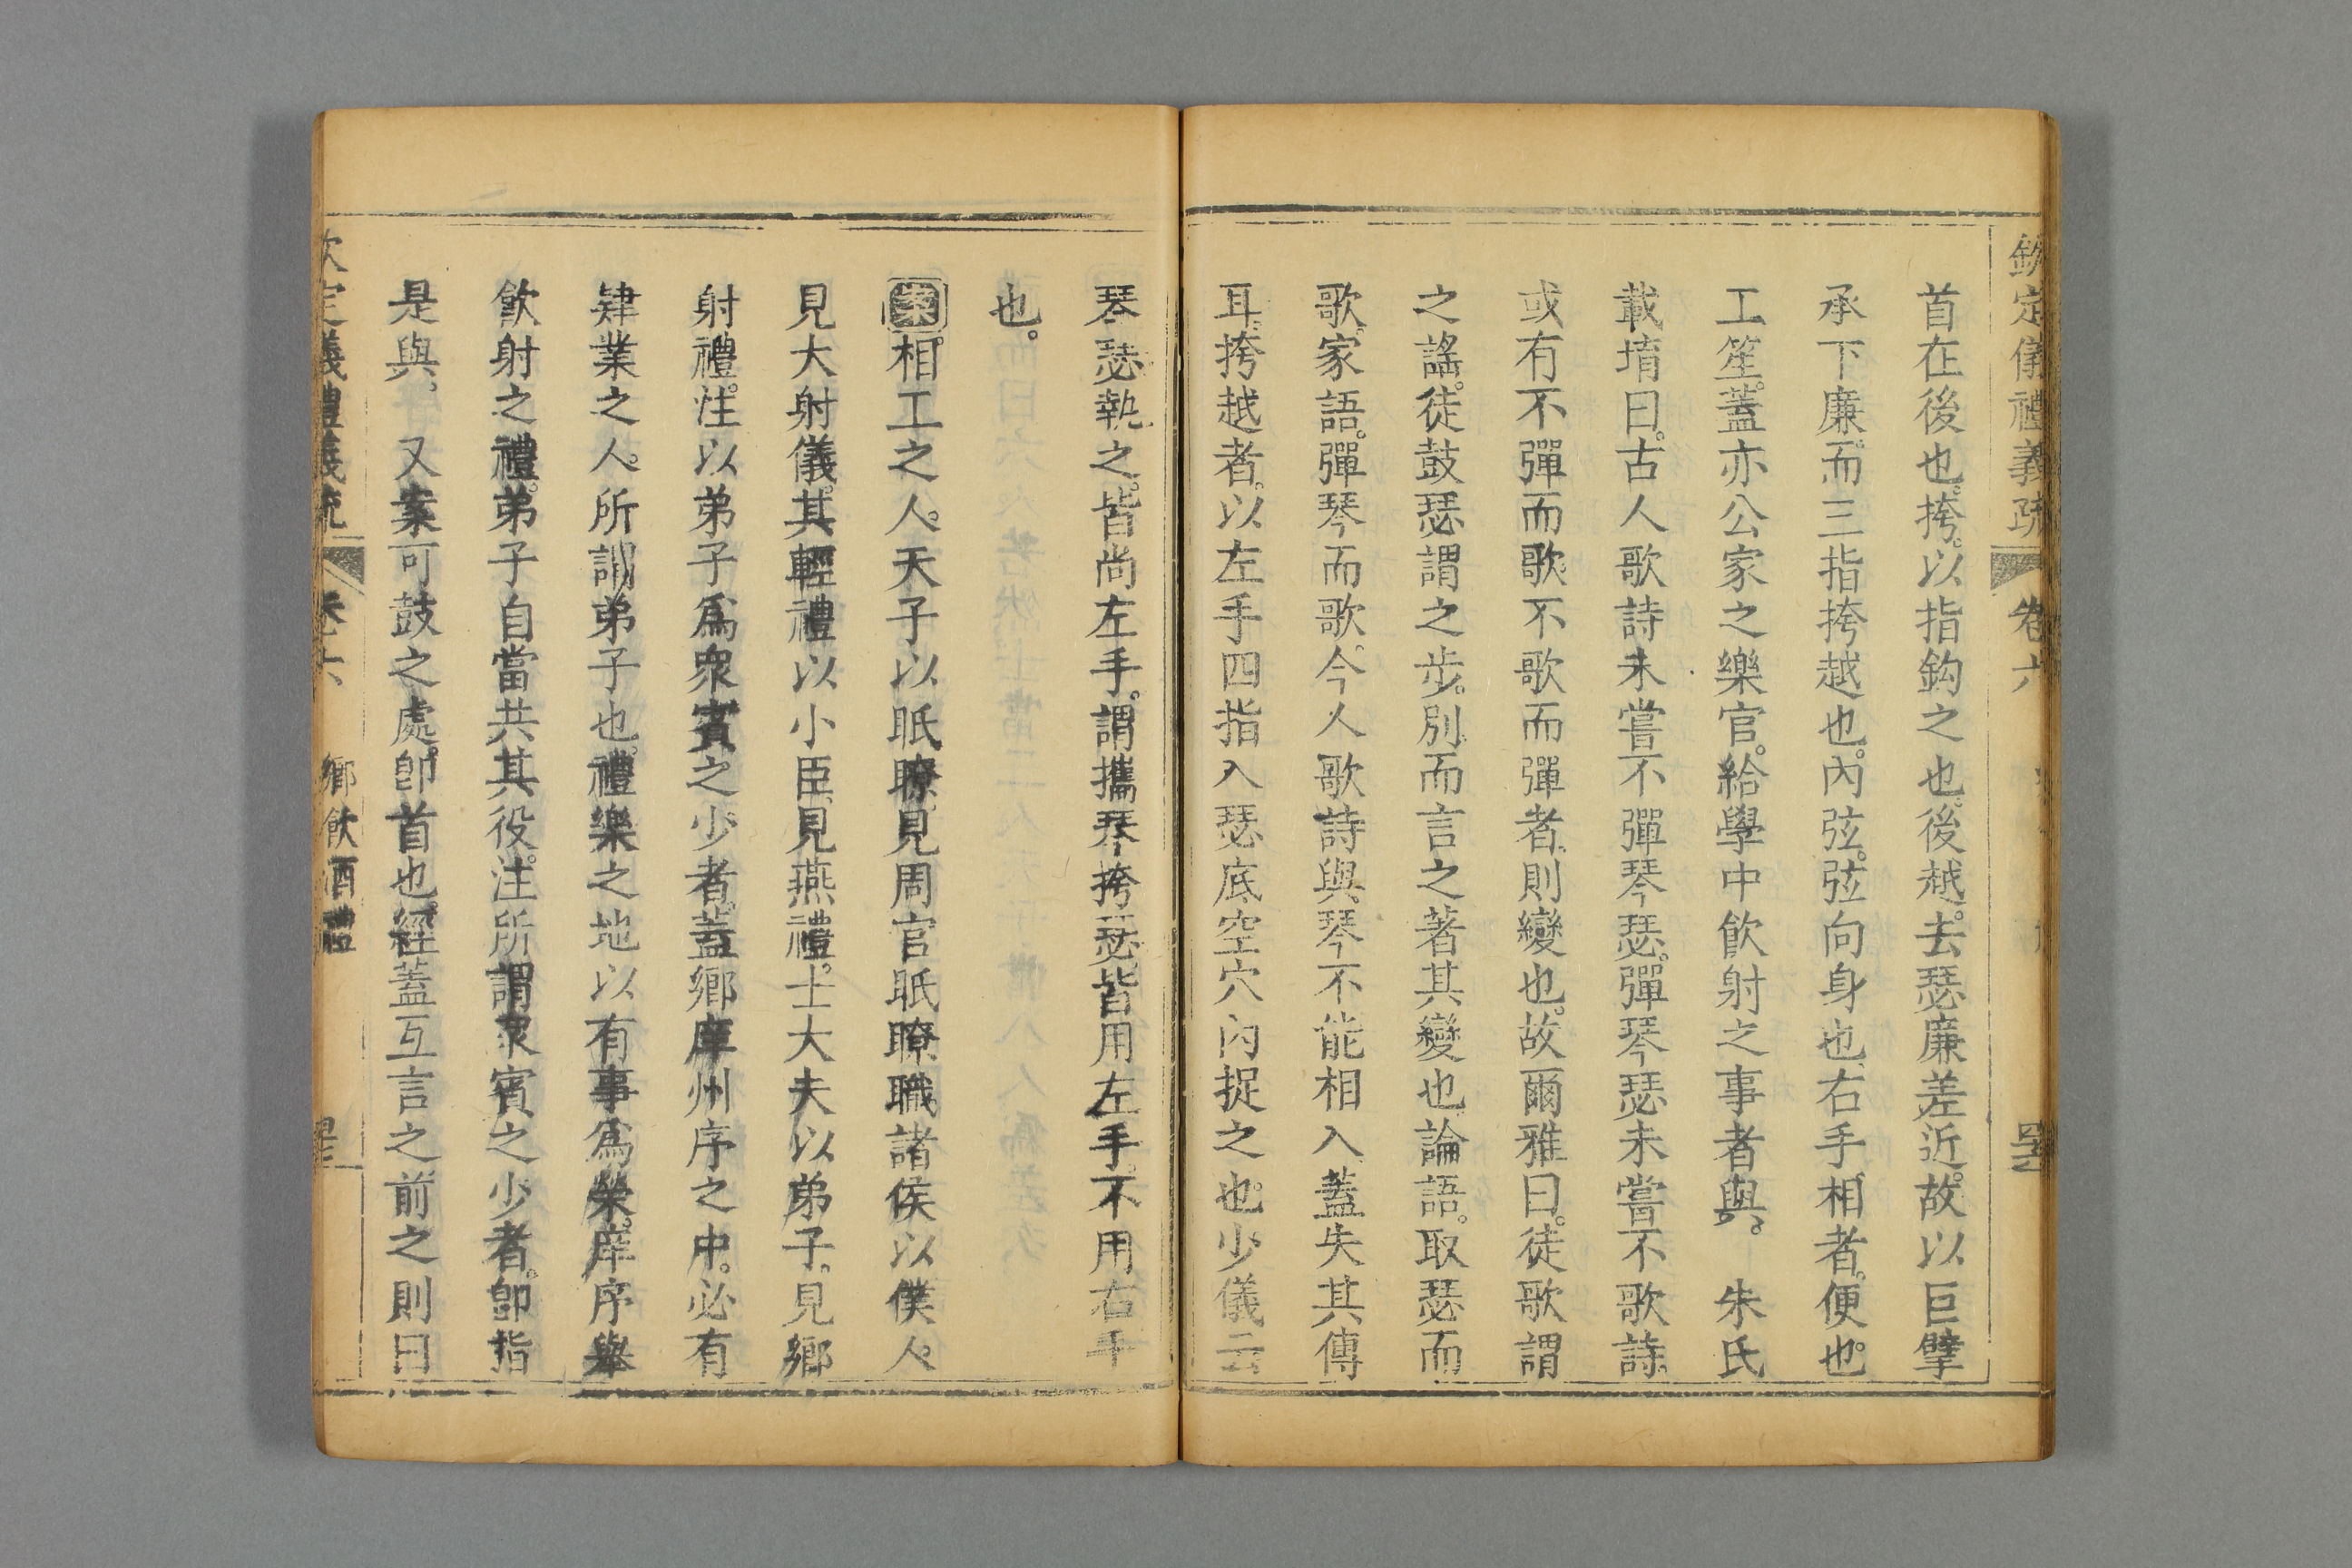 欽定儀禮義疏 卷六
首在後也。挎。以指鈎之也。後越。去瑟廉差近。故以巨擘
承下廉。而三指挎越也。內弦。弦向身也。右手相者。便也。
工笙。蓋亦公家之樂官。給學中飮射之事者與。 朱氏
載堉曰。古人歌詩未嘗不彈琴瑟。彈琴瑟未嘗不歌詩。
或有不彈而歌。不歌而彈者。則變也。故爾雅曰。徒歌謂
之謠。徒鼓瑟謂之步。別而言之著其變也論語。取瑟而
歌。家語。彈琴而歌。今人歌詩與琴不能相入。蓋失其傳
耳。挎越者。以左手四指入瑟底空穴內捉之也。少儀云
琴瑟執之。皆尚左手。謂攜琴挎瑟。皆用左手。不用右手
也。
案相工之人。天子以眂瞭。見周官眂瞭職。諸侯以僕人。
見大射儀。其輕禮以小臣。見燕禮。士大夫以弟子。見鄉
射禮。注以弟子爲衆賓之少者。蓋鄉庠州序之中。必有
肄業之人。所謂弟子也。禮樂之地以有事爲榮。庠序舉
飮射之禮。弟子自當共其役。注所謂衆賓之少者。卽指
是與。 又案可鼓之處。卽首也。經蓋互言之前之則曰
欽定儀禮義疏 卷六 鄉飮酒禮